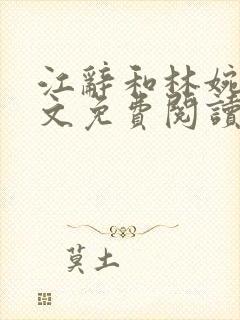 江辭和林婉
文免費閱讀
莫土